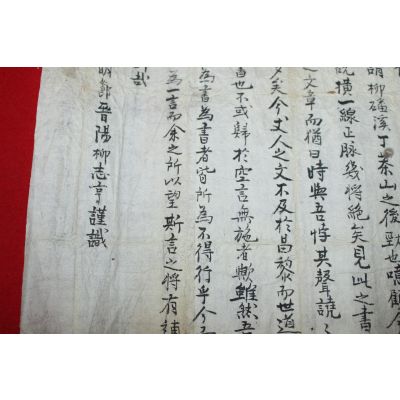 謂柳磻溪丁茶山之後勁也噫顧今
說橫一線正脉幾將絶矣見此之書
之文章而猶曰時與吾悖其聲譊〻
夕矣今丈人之文不及於昌黎而世道
昌也不或歸於空言無施者歟雖然吾
爲書爲書者皆所爲不得行乎今
爲一言而余之所以望斯言之將有補
哉
明節晉陽柳志亨謹識